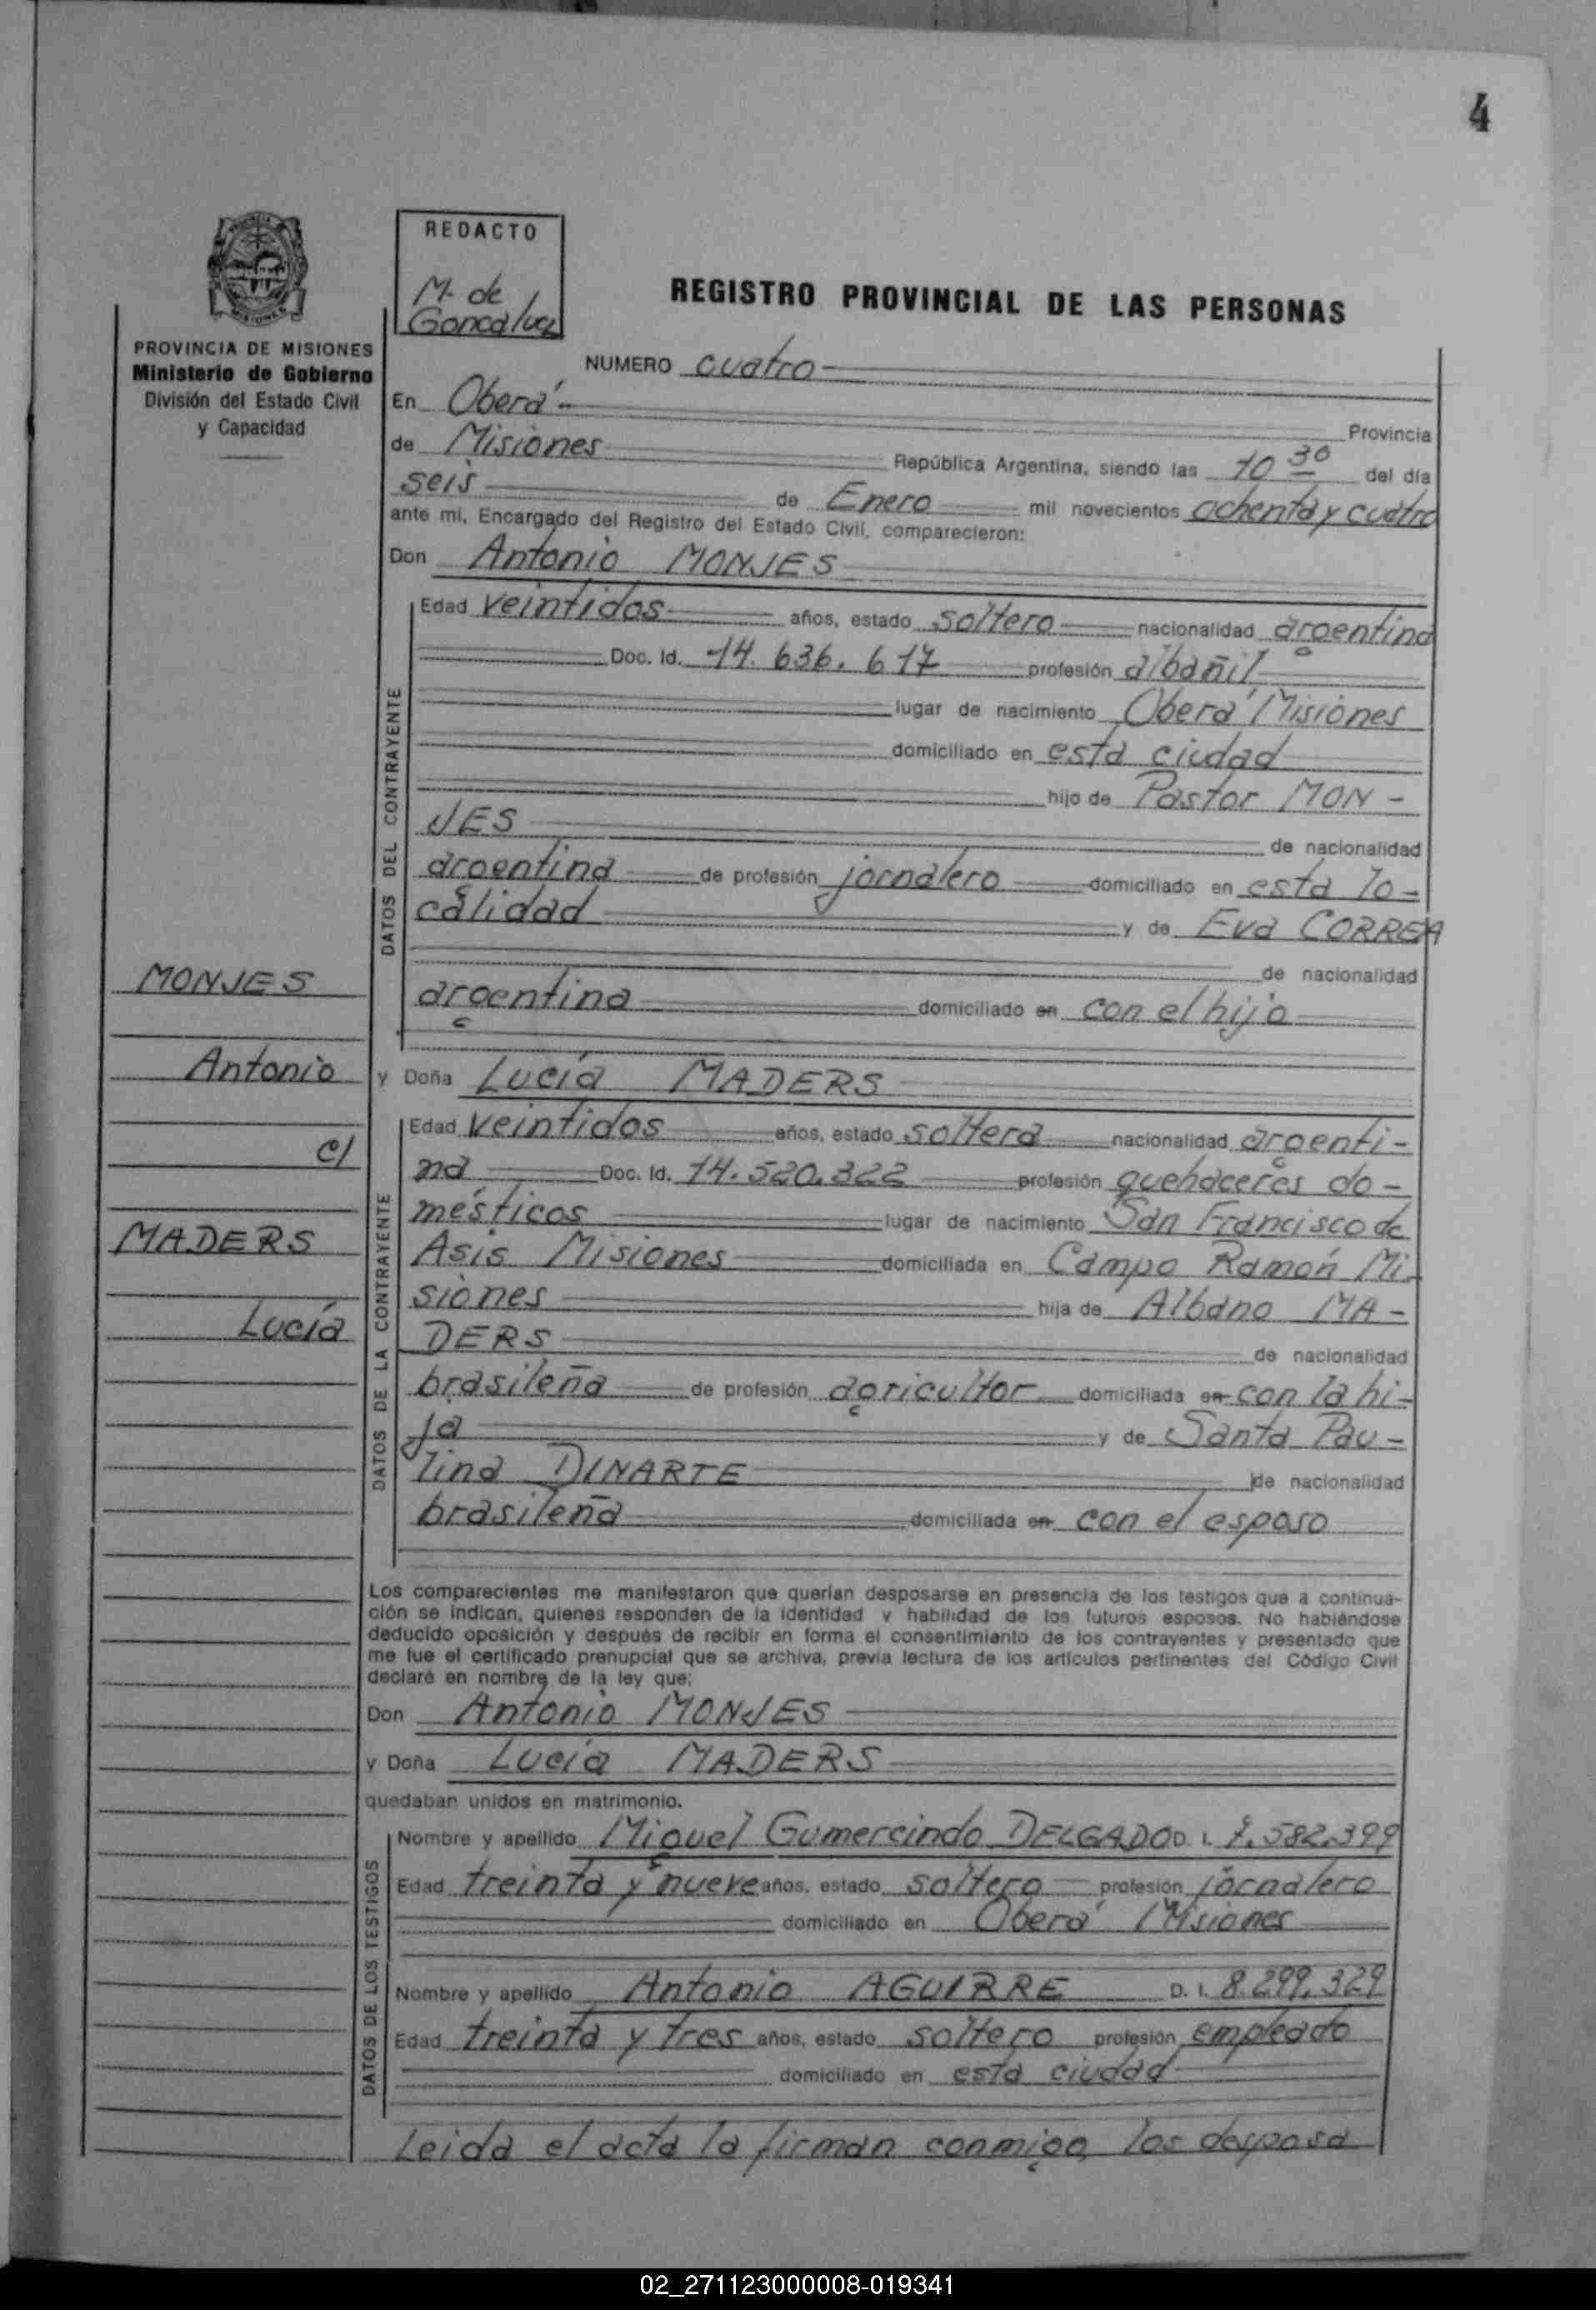 4
REDACTO
M. de
Goncalvez
REGISTRO PROVINCIAL DE LAS PERSONAS
PROVINCIA DE MISIONES
Ministerio de Gobierno
División del Estado Civil
y Capacidad
NUMERO cuatro
En Oberá
Provincia
de Misiones República Argentina, siendo las 10 30 del día
seis de Enero mil novecientos ochenta y cuatro
ante mi, Encargado del Registro del Estado Civil, comparecieron:
Don Antonio MONJES
DATOS DEL CONTRAYENTE
Edad veintidos años, estado soltero nacionalidad argentina
Doc. Id. 14.636.617 profesión albañil
lugar de nacimiento Oberá Misiones
domiciliado en esta ciudad
hijo de Pastor MON-
JES de nacionalidad
argentina de profesión jornalero domiciliado en esta lo-
calidad y de Eva CORREA
de nacionalidad
argentina domiciliado en con el hijo
MONJES
Antonio
c/
MADERS
Lucía
y Doña Lucía MADERS
DATOS DE LA CONTRAYENTE
Edad veintidos años, estado soltera nacionalidad argenti-
na Doc. Id. 14.520.322 profesión quehaceres do-
mésticos lugar de nacimiento San Francisco de
Asis Misiones domiciliada en Campo Ramón Mi-
siones hija de Albano MA-
DERS de nacionalidad
brasileña de profesión agricultor domiciliada en con la hi-
ja y de Santa Pau-
lina DINARTE de nacionalidad
brasileña domiciliada en con el esposo
Los comparecientes me manifestaron que querían desposarse en presencia de los testigos que a continua-
ción se indican, quienes responden de la identidad y habilidad de los futuros esposos. No habiéndose
deducido oposición y después de recibir en forma el consentimiento de los contrayentes y presentado que
me fue el certificado prenupcial que se archiva, previa lectura de los artículos pertinentes del Código Civil
declaré en nombre de la ley que:
Don Antonio MONJES
y Doña Lucía MADERS
quedaban unidos en matrimonio.
DATOS DE LOS TESTIGOS
Nombre y apellido Miguel Gumercindo DELGADO D. I. .582.399
Edad treinta y nueve años, estado soltero profesión jornalero
domiciliado en Oberá Misiones
Nombre y apellido Antonio AGUIRRE D. I. 8.299.329
Edad treinta y tres años, estado soltero profesión empleado
domiciliado en esta ciudad
Leida el acta la firman conmigo, los desposa
02_271123000008-019341